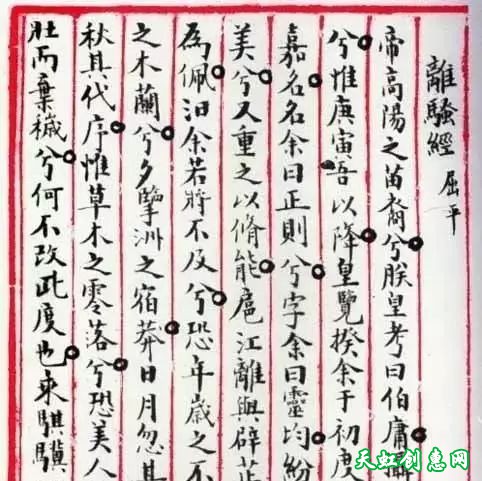 離騷經 屈平
帝高陽之苗裔兮朕皇考曰伯庸攝
兮惟庚寅吾以降皇覽揆余于初度
嘉名名余曰正則兮字余曰靈均紛
美兮又重之以脩能扈江離與辟芷
為佩汨余若將不及兮恐年歲之不
之木蘭兮夕擥洲之宿莽日月忽其
秋其代序惟草木之零落兮恐美人
壯而棄穢兮何不改此度也乘騏驥
天虹创意网